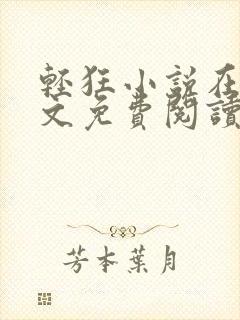 輕狂小說在
文免費閱讀
芳本葉月